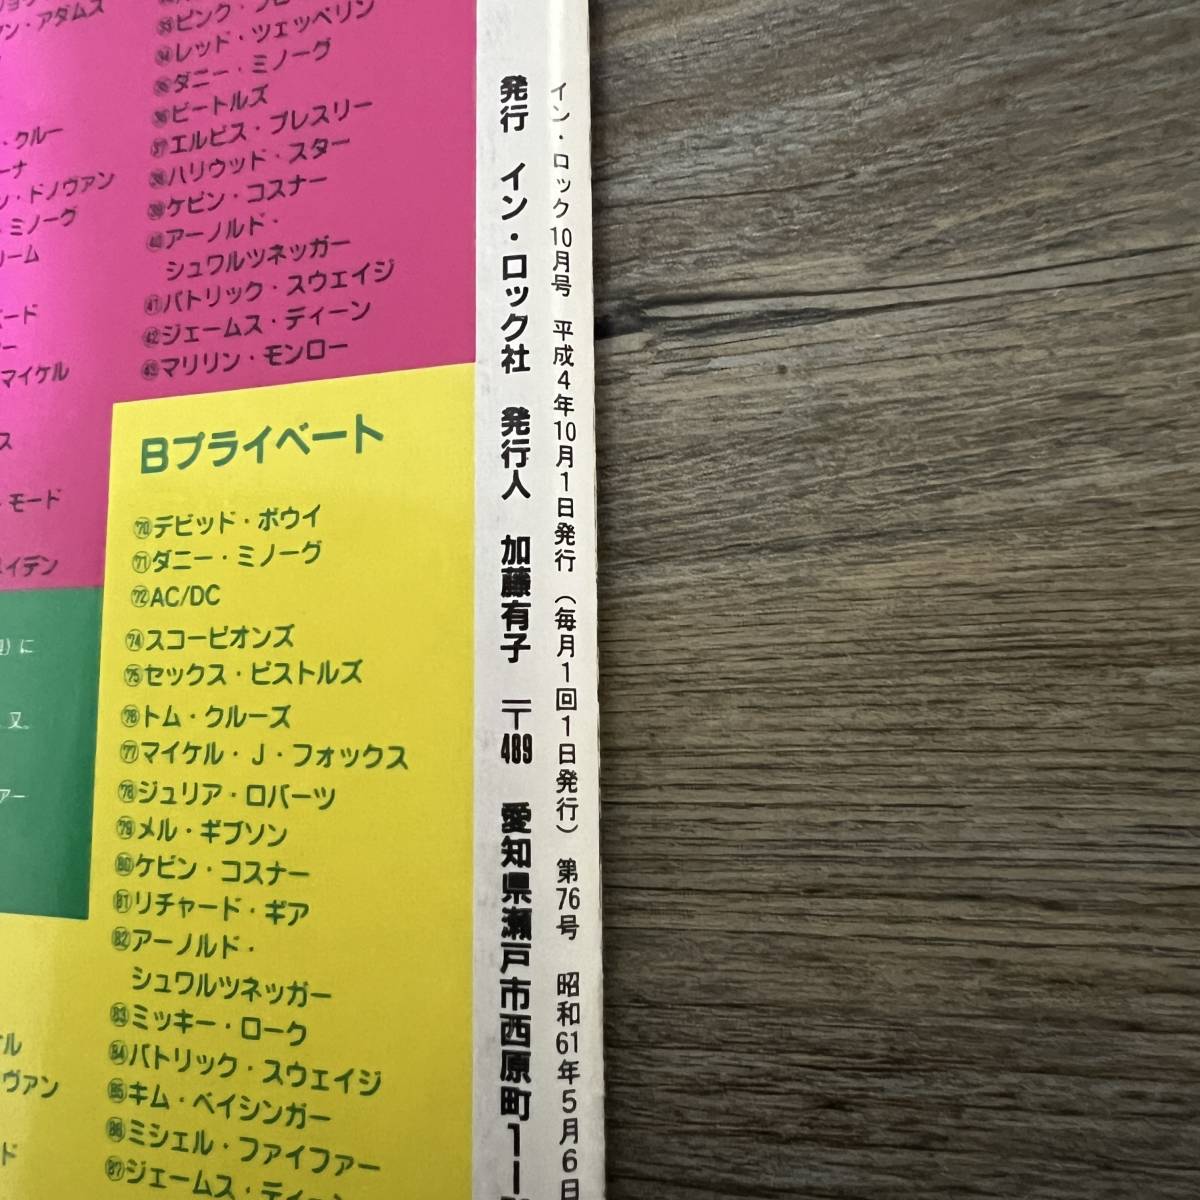 ン・アダムス
・クルー
ーナ
ン・ドノヴァン
・ミノーグ
リーム
ード
ー
マイケル
ス
・モード
メイデン
㉝ピンク・フロ
㉞レッド・ツェッペリン
㉟ダニー・ミノーグ
㊱ビートルズ
㊲エルビス・プレスリー
㊳ハリウッド・スター
㊴ケビン・コスナー
㊵アーノルド・
シュワルツネッガー
㊶パトリック・スウェイジ
㊷ジェームス・ディーン
㊸マリリン・モンロー
に
又、
アー
Bプライベート
⑦⓪デビッド・ボウイ
⑦①ダニー・ミノーグ
⑦②AC/DC
⑦④スコーピオンズ
⑦⑤セックス・ピストルズ
⑦⑥トム・クルーズ
⑦⑦マイケル・J・フォックス
⑦⑧ジュリア・ロバーツ
⑦⑨メル・ギブソン
⑧⓪ケビン・コスナー
⑧①リチャード・ギア
⑧②アーノルド・
シュワルツネッガー
⑧③ミッキー・ローク
⑧④パトリック・スウェイジ
⑧⑤キム・ベイシンガー
⑧⑥ミシェル・ファイファー
⑧⑦ジェームス・ディーン
ル
ヴァン
ド
イン・ロック10月号 平成4年10月1日発行（毎月1回1日発行）第76号 昭和61年5月6日
発行 イン・ロック社 発行人 加藤有子 〒489 愛知県瀬戸市西原町1ー